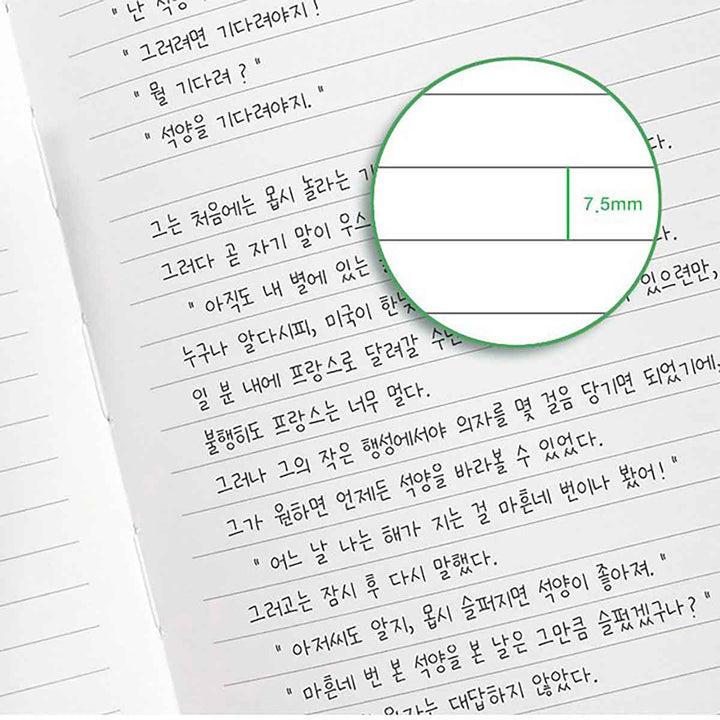 " 난
" 그러려면 기다려야지!
" 뭘 기다려 ? "
" 석양을 기다려야지. "
그는 처음에는 몹시 놀라는
다.
그러다 곧 자기 말이 우스
7.5mm
" 아직도 내 별에 있는
다.
누구나 알다시피, 미국이
있으련만,
일 분 내에 프랑스로 달려갈
불행히도 프랑스는 너무 멀다.
그러나 그의 작은 행성에서야 의자를 몇 걸음 당기면 되었기에,
그가 원하면 언제든 석양을 바라볼 수 있었다.
" 어느 날 나는 해가 지는 걸 마흔네 번이나 봤어! "
그러고는 잠시 후 다시 말했다.
" 아저씨도 알지, 몹시 슬퍼지면 석양이 좋아져. "
" 마흔네 번 본 석양을 본 날은 그만큼 슬펐겠구나? "
대답하지 않았다.